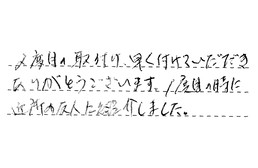 2度目の取付け、早く付けていただき
ありがとうございます。1度目の時に
近所の友人に紹介しました。